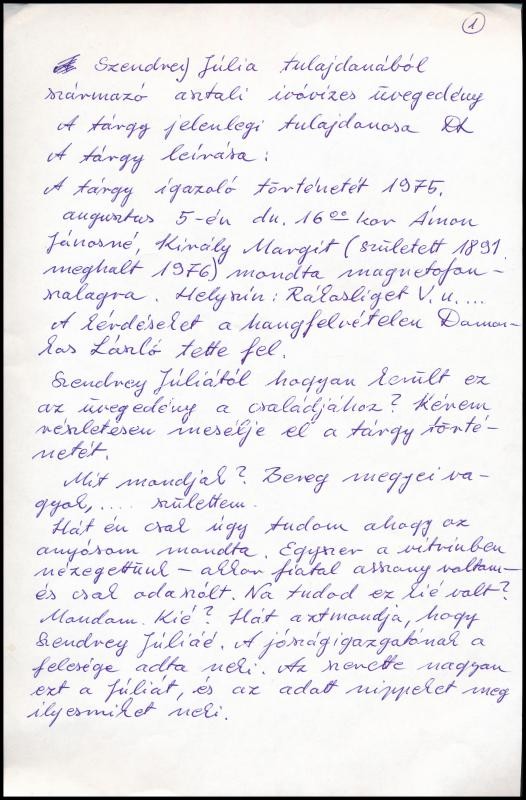 1
Szendrey Júlia tulajdonából
származó asztali ivóvizes üvegedény
A tárgy jelenlegi tulajdonosa DL
A tárgy leírása:
A tárgy igazoló történetét 1975.
augusztus 5-én du. 16 00 kor Ámon
Jánosné, Király Margit (született 1891.
meghalt 1976) mondta magnetofon-
szalagra. Helyszín: Rákosliget V. u. ....
A kérdéseket a hangfelvételen Damar-
kas László tette fel.
Szendrey Júliától hogyan került ez
az üvegedény a családjához? Kérem
részletesen mesélje el a tárgy törté-
netét.
Mit mondjak? Bereg megyei va-
gyok, .... születtem.
Hát én csak úgy tudom ahogy az
anyósom mondta. Egyszer a vitrinben
nézegettünk – akkor fiatal asszony voltam –
és csak odaszólt. Na tudod ez kié volt?
Mondom. Kié? Hát aztmondja, hogy
Szendrey Júliáé. A jószágigazgatónak a
felesége adta neki. Az szerette nagyon
ezt a Júliát, és az adott nippeket meg
ilyesmiket neki.